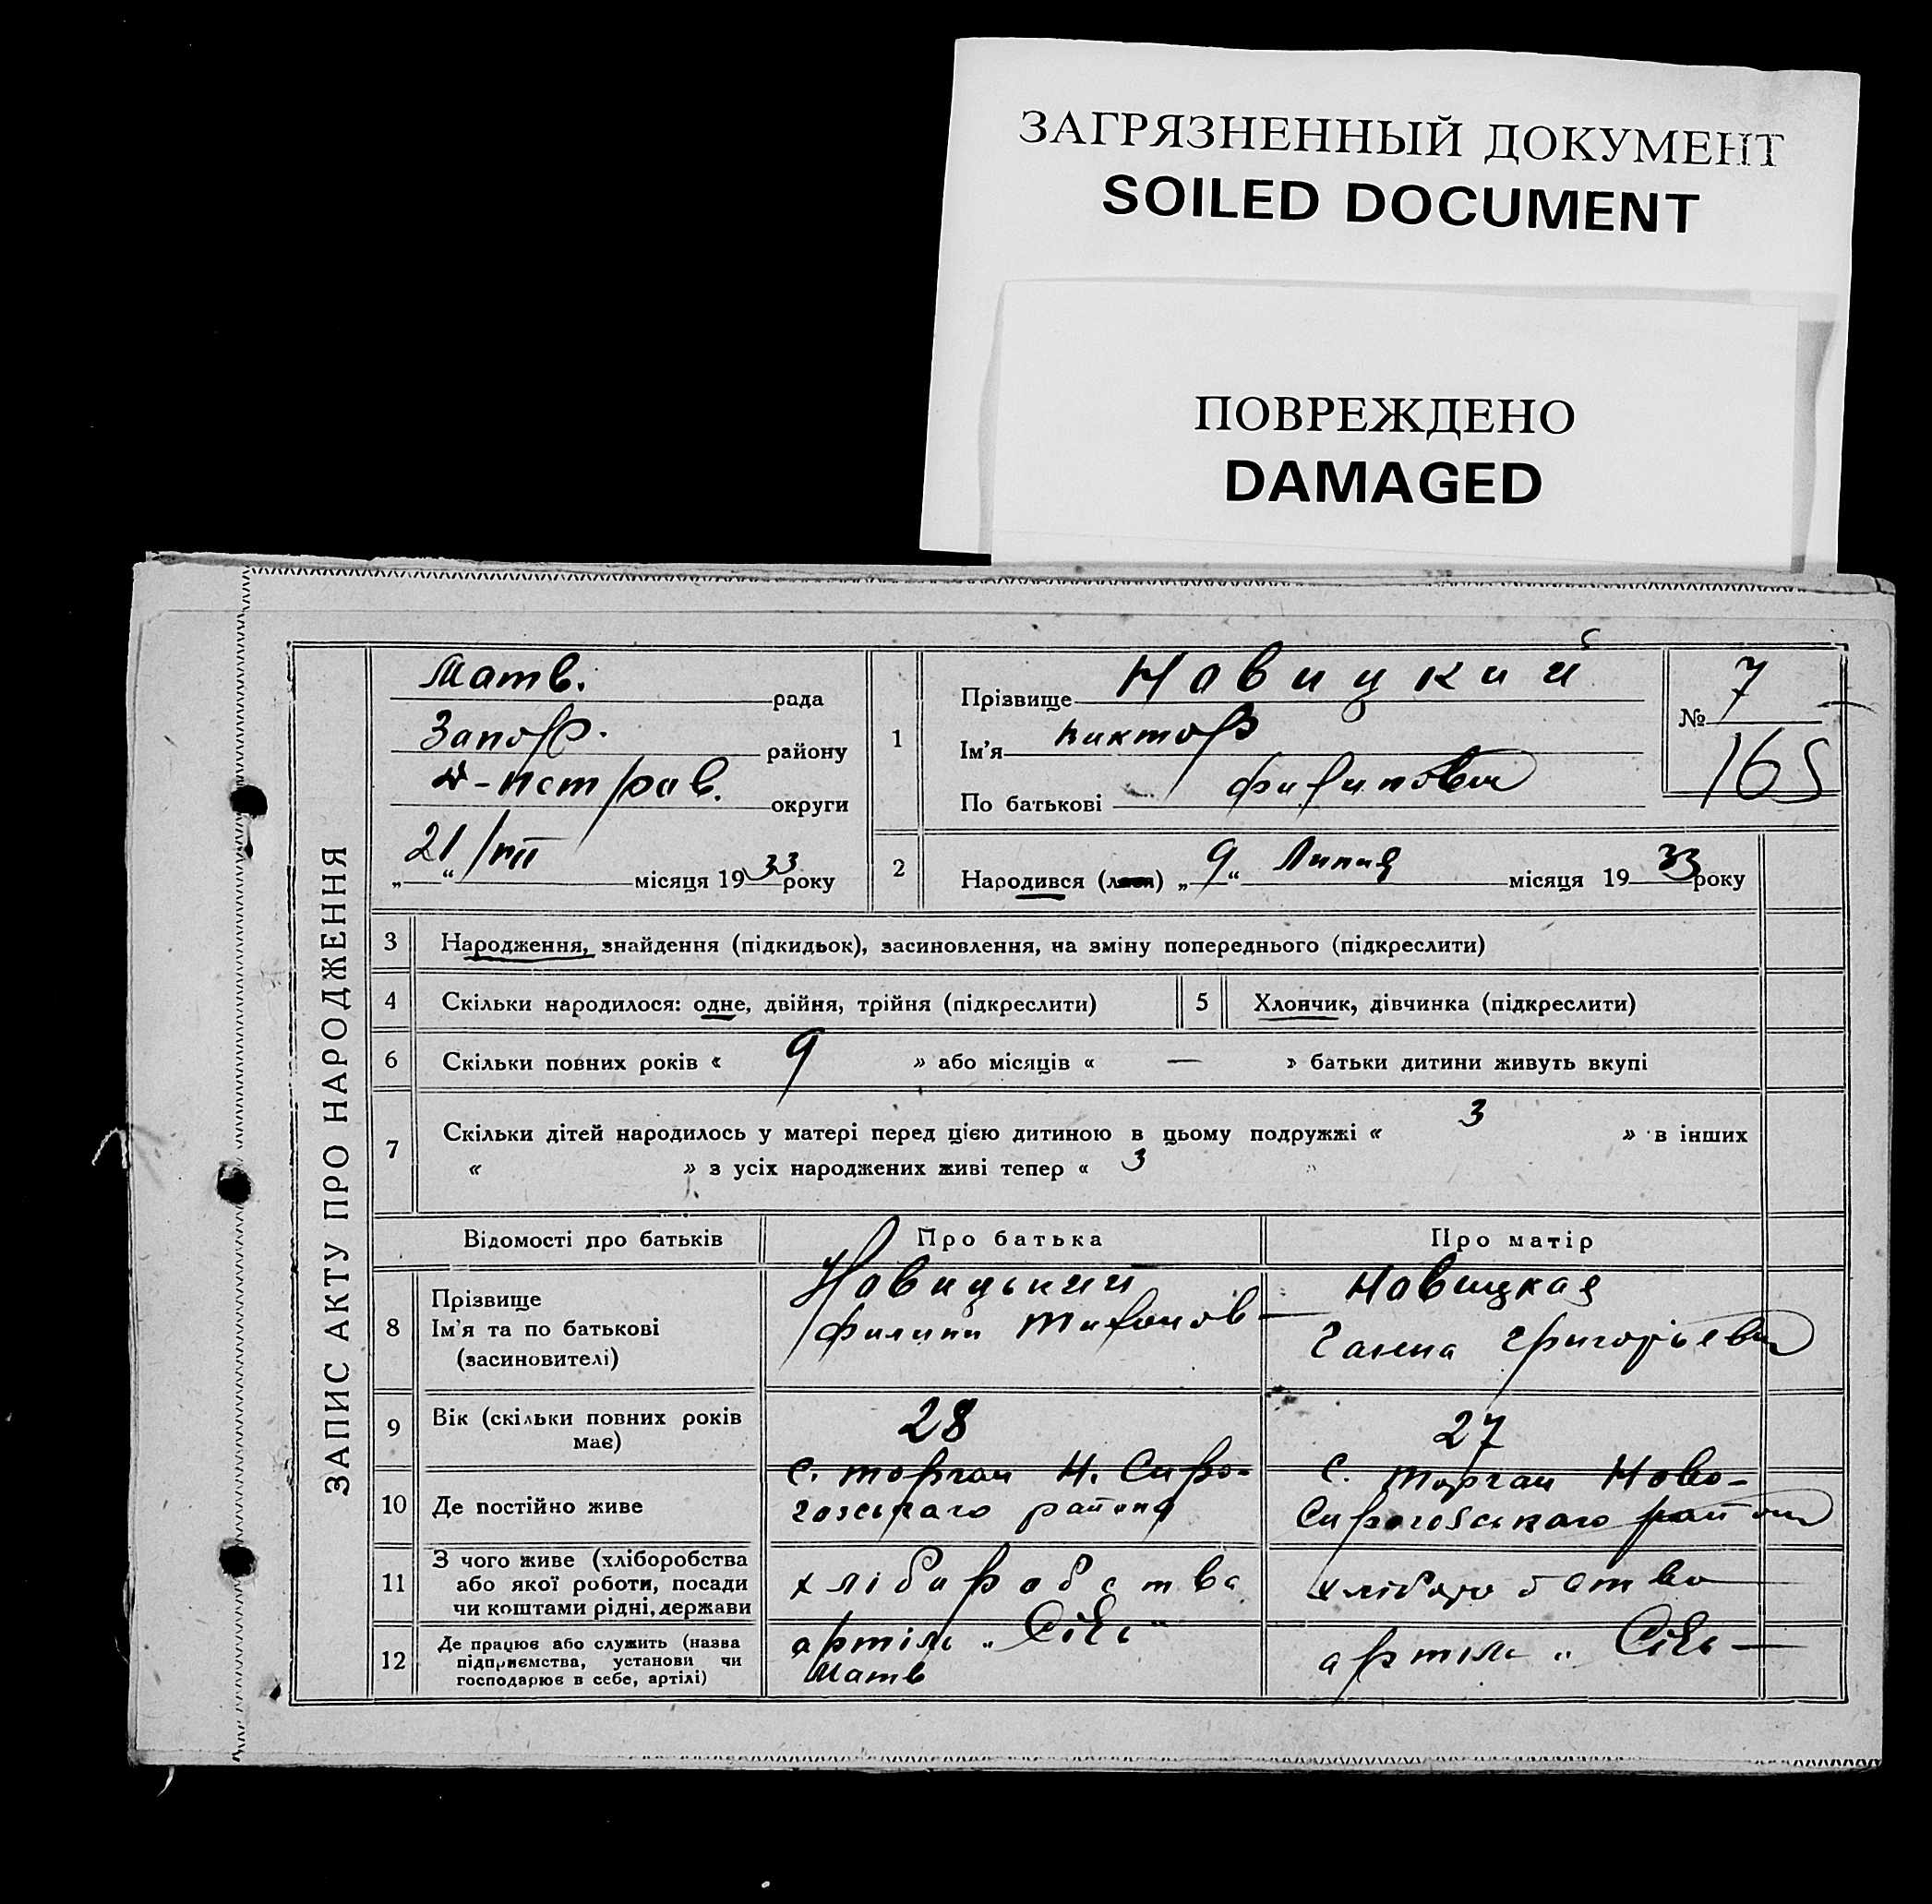 ЗАГРЯЗНЕННЫЙ ДОКУМЕНТ
SOILED DOCUMENT
ПОВРЕЖДЕНО
DAMAGED
ЗАПИС АКТУ ПРО НАРОДЖЕННЯ
Матв. рада
Запор. району
округи
„21“ /VII місяця 1933 року
1
Прізвище Новицкий
Ім'я Виктор
По батькові Филипович
№ 7
165
2
Народився (лась) „9“ Липня місяця 1933 року
3 Народження, знайдення (підкидьок), засиновлення, на зміну попереднього (підкреслити)
4 Скільки народилося: одне, двійня, трійня (підкреслити)
5 Хлопчик, дівчинка (підкреслити)
6 Скільки повних років « 9 » або місяців « — » батьки дитини живуть вкупі
7 Скільки дітей народилось у матері перед цією дитиною в цьому подружжі « 3 » в інших
« » з усіх народжених живі тепер « 3
Відомості про батьків
Про батька
Про матір
8
Прізвище
Ім'я та по батькові
(засиновителі)
Новицький
Филипп
Новицкая
Ганна Григорьевна
9
Вік (скільки повних років
має)
28
27
10 Де постійно живе
с. Торгаи Н. Сиро-
гозського района
с. Торгаи Ново-
Сирогозського района
11
З чого живе (хліборобства
або якої роботи, посади
чи коштами рідні, держави
хлібаробства
хліборобство
12
Де працює або служить (назва
підприємства, установи чи
господарює в себе, артілі)
артіль „Січь“
Матв
артіль „Січь